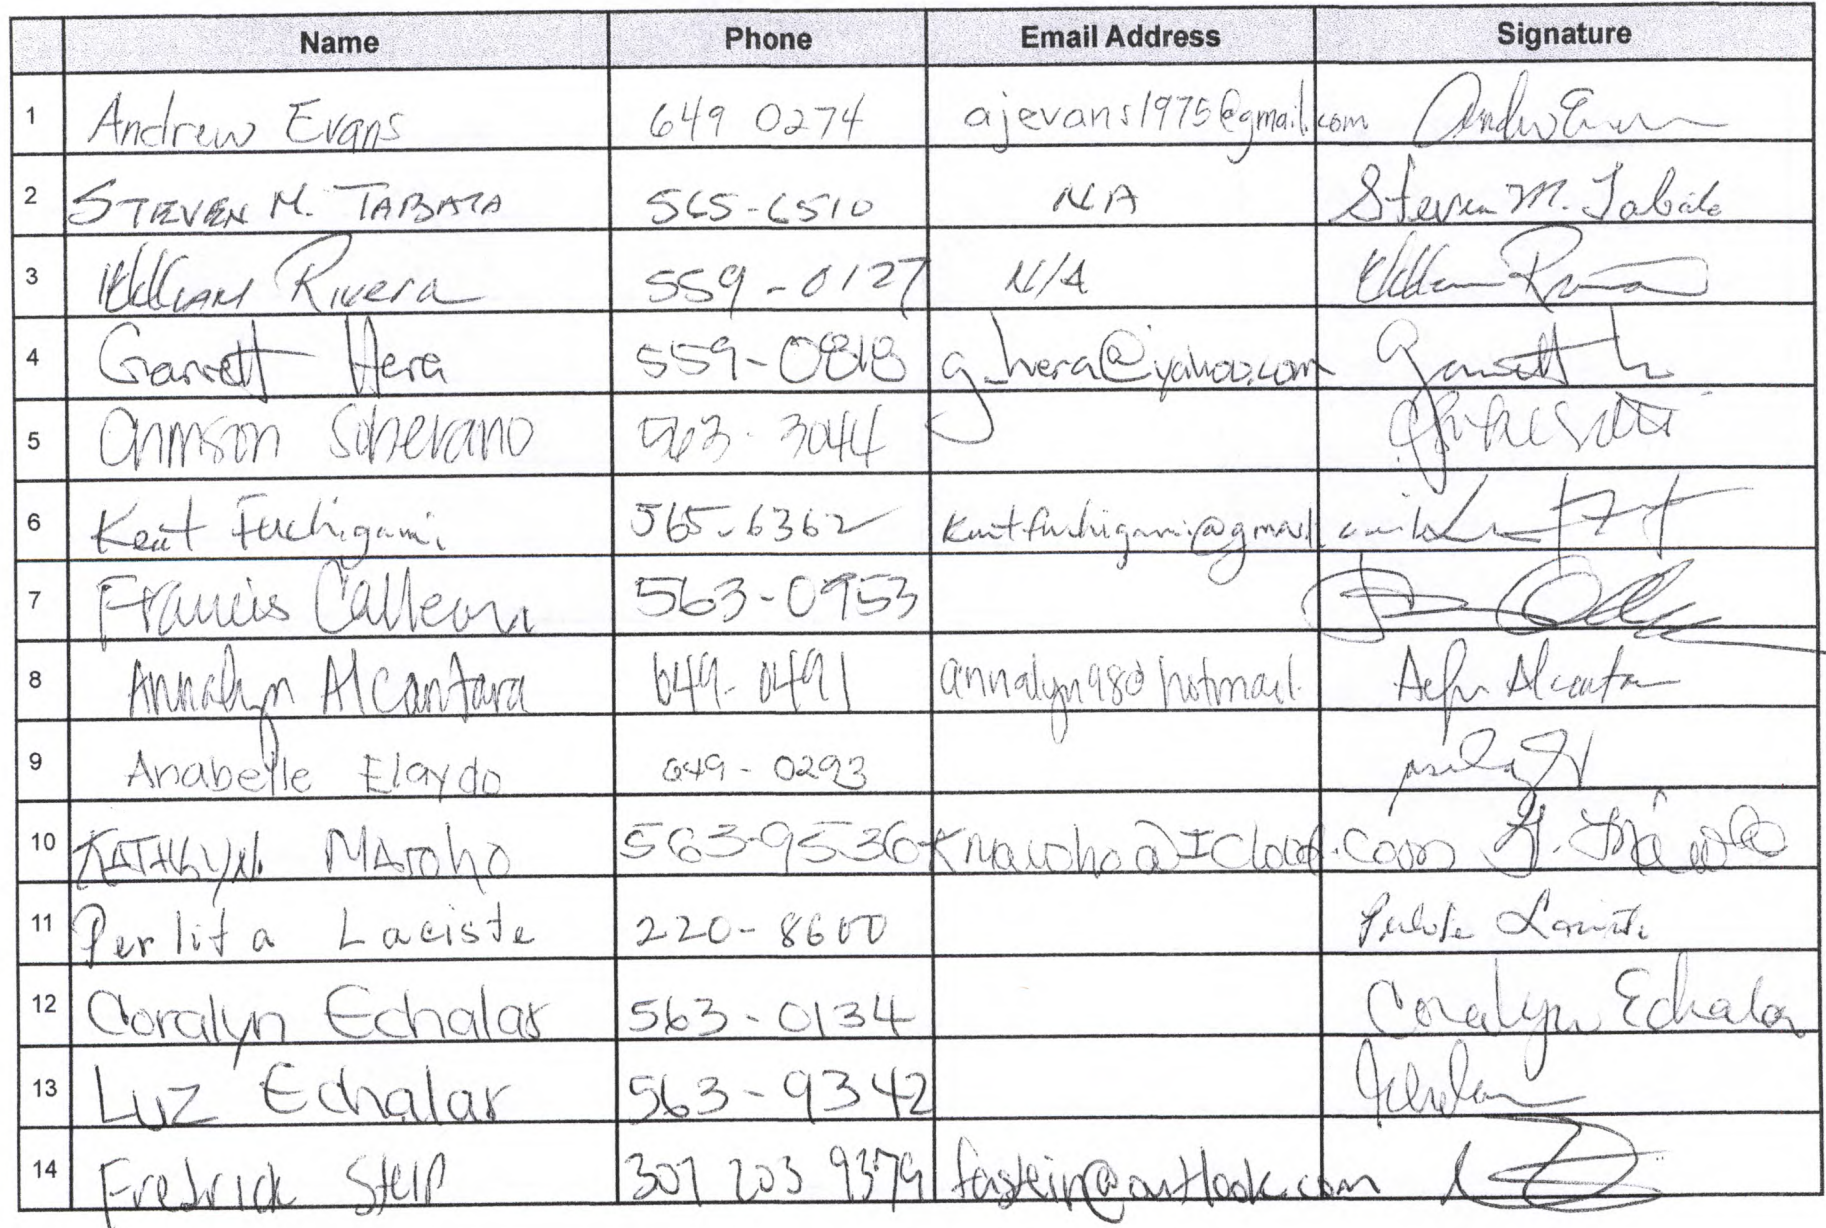 Name Phone Email Address Signature
1 Andrew Evans 649 0274 ajevans1975@gmail.com
2 STEVEN M. TABATA 565-6510 N/A Steven M. Tabata
3 William Rivera 559-0127 N/A William
4 Garrett Hera 559-0818 g_hera@yahoo.com Garrett
5 Soberano 563-3044
6 Kent Fuchigami 565-6362 kentfuchigami@gmail.
7 Francis 563-0953
8 Annalyn Alcantara 649-0491 annalyn98@hotmail. Alcantara
9 Anabelle Elaydo 649-0293
10 563-9536 @Icloud.com
11 Perlita Laciste 220-8600 Perlita Laciste
12 Coralyn Echalar 563-0134 Coralyn Echalar
13 Luz Echalar 563-9342
14 Fredrick 307 203 9379 fastein@outlook.com